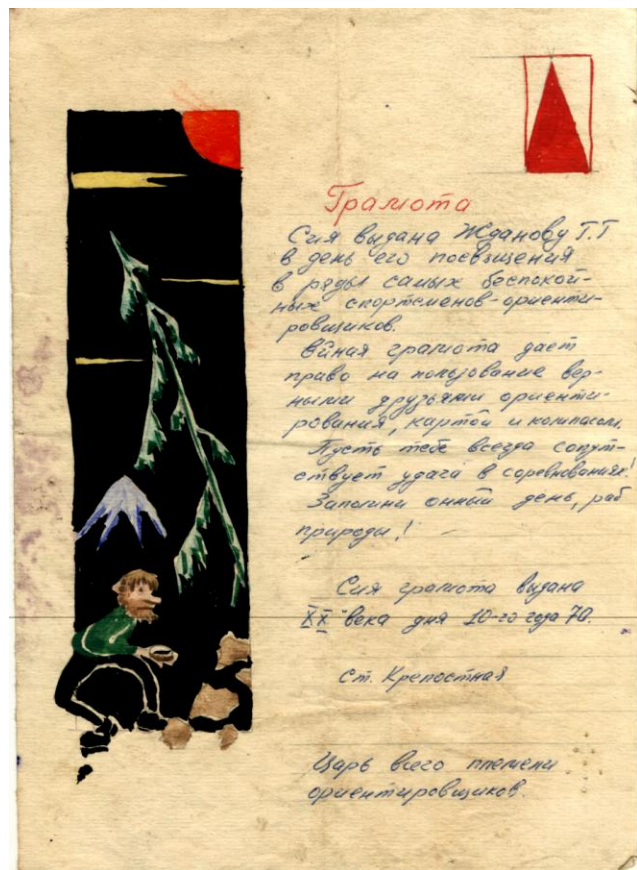 Грамота
Сия выдана Жданову Г.Г
в день его посвящения
в ряды самых беспокой-
ных спортсменов-ориенти-
ровщиков.
Оная грамота дает
право на пользование вер-
ными друзьями ориенти-
рования, картой и компасом.
Пусть тебе всегда сопут-
ствует удача в соревнованиях!
Запомни онный день, раб
природы!
Сия грамота выдана
XX века дня 10-го года 70.
Ст. Крепостная
Царь всего племени
ориентировщиков.